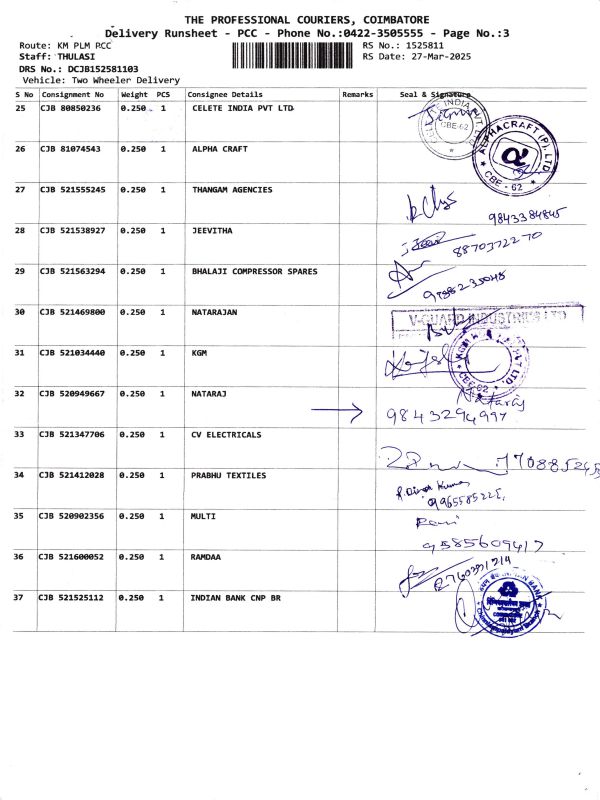 THE PROFESSIONAL COURIERS, COIMBATORE
Delivery Runsheet - PCC - Phone No.:0422-3505555 - Page No.:3
Route: KM PLM PCC RS No.: 1525811
Staff: THULASI RS Date: 27-Mar-2025
DRS No.: DCJB152581103
Vehicle: Two Wheeler Delivery
S No Consignment No Weight PCS Consignee Details Remarks Seal & Signature
25 CJB 80850236 0.250 1 CELETE INDIA PVT LTD
CELETE INDIA PVT
CBE-62
26 CJB 81074543 0.250 1 ALPHA CRAFT
ALPHACRAFT (P) LTD
α
CBE - 62
27 CJB 521555245 0.250 1 THANGAM AGENCIES
9843384845
28 CJB 521538927 0.250 1 JEEVITHA
8870372270
29 CJB 521563294 0.250 1 BHALAJI COMPRESSOR SPARES
30 CJB 521469800 0.250 1 NATARAJAN
V-GUARD INDUSTRIES LTD
31 CJB 521034440 0.250 1 KGM
CBE-62
32 CJB 520949667 0.250 1 NATARAJ Nataraj
9843294997
33 CJB 521347706 0.250 1 CV ELECTRICALS
34 CJB 521412028 0.250 1 PRABHU TEXTILES
35 CJB 520902356 0.250 1 MULTI
9585609417
36 CJB 521600052 0.250 1 RAMDAA
37 CJB 521525112 0.250 1 INDIAN BANK CNP BR
INDIAN BANK